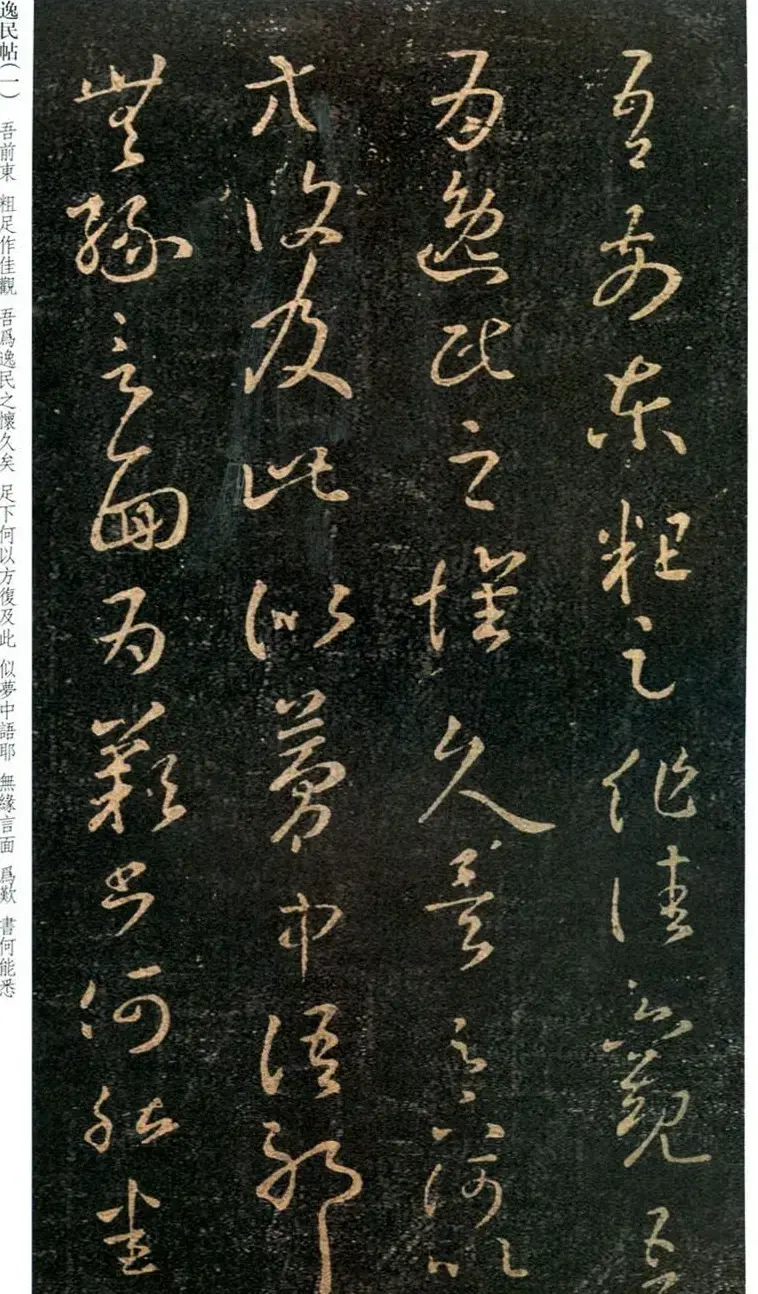 吾前東粗足作佳觀吾
爲逸民之懷久矣足下何以
方復及此似夢中語耶
無緣言面爲歎書何能悉
逸民帖(一) 吾前東 粗足作佳觀 吾爲逸民之懷久矣 足下何以方復及此 似夢中語耶 無緣言面 爲歎 書何能悉